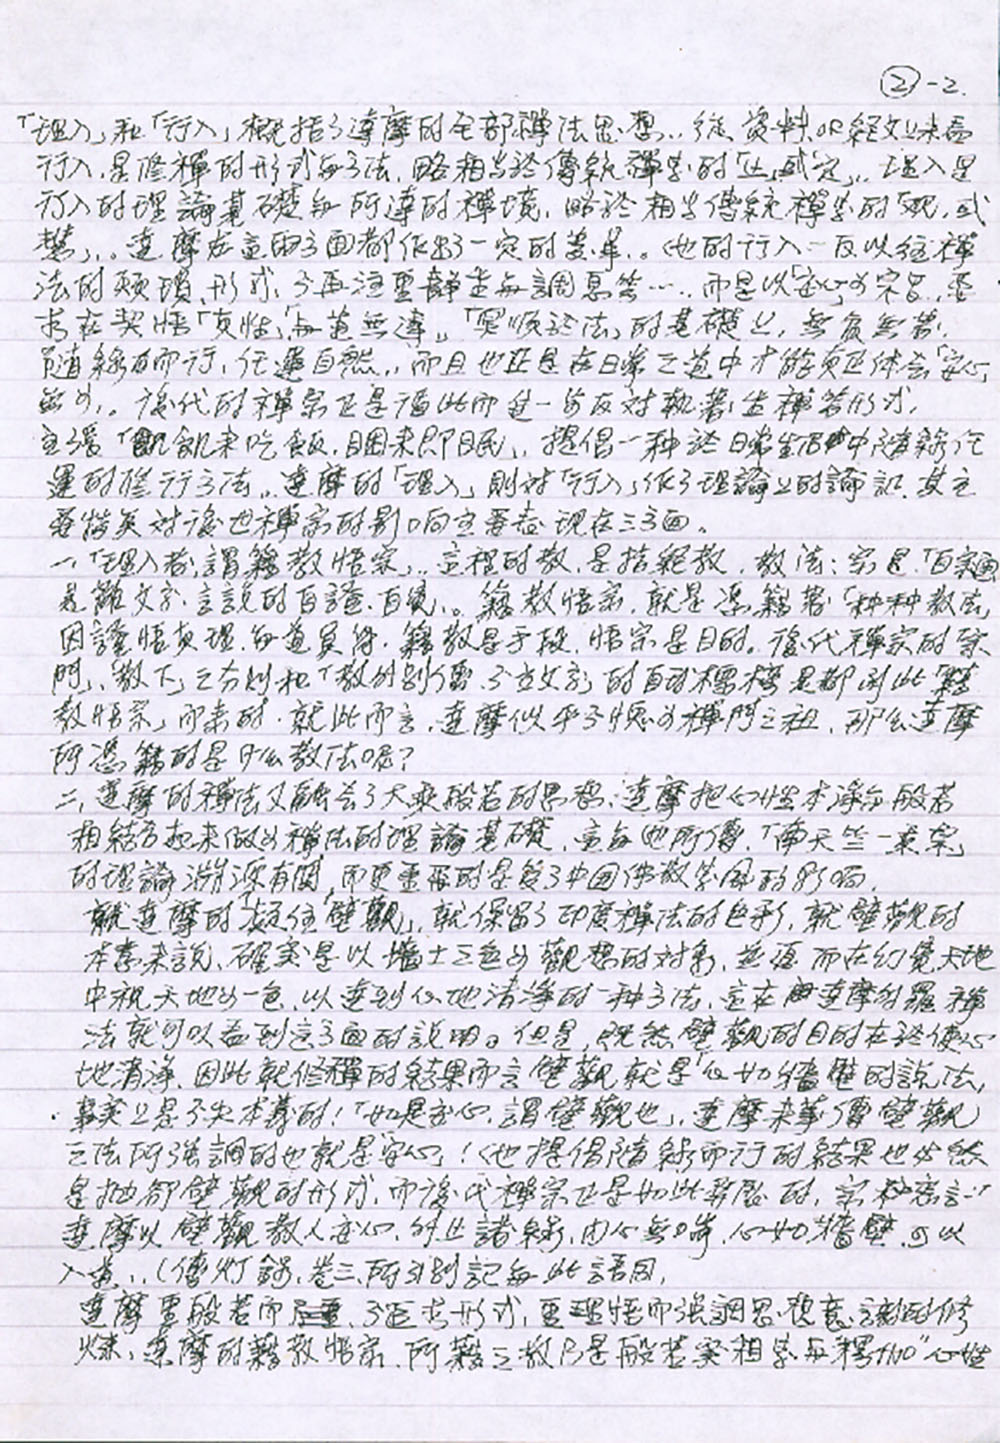 ②-2.
「理入」和「行入」概括了達摩的全部禪法思想.. 從資料 or 經文上來看
行入.是修禪的形式與方法.略相當於傳統禪學的「止」或「定」.. 理入是
行入的理論基礎與所達的禪境.略於相當傳統禪學的「觀」或
慧」.。達摩在這兩方面都作出了一定的差異.。他的行入一反以往禪
法的煩瑣.形式.不再注重靜坐與調息等…. 而是以「安心」为宗旨.要
求在契悟「真性」「與道無違」.「冥順於法」的基礎上.無食無著.
隨緣而行.任運自然..而且也正是在日常之道中才能真正体会「安心
無为」。後代的禪宗正是循此而進一步反对執著坐禪等形式.
主張「飢來吃飯.困來即眠」.提倡一种於日常生活中隨緣任
運的修行方法.. 達摩的「理入」則対「行入」作了理論上的論証.其主
要特点対後世禪宗的影响主要表現在三方面。
一.「理入者,謂籍教悟宗」.. 這裡的教.是指經教.教法;宗是「自宗通
是離文字.言說的自證.自覺」.。籍教悟宗.就是憑籍著「种种教法」
因證悟真理.與道冥符.籍教是手段.悟宗是目的。後代禪宗的「宗
門」「教下」之分別和「教外別傳.不立文字」的自我標榜是都同此「籍
教悟宗」而來的.就此而言.達摩似乎不愧为禪門之祖.那么達摩
所憑籍的是什么教法呢?
二.達摩的禪法又融会了大乘般若的思想.達摩把心性本淨與般若
相結合起來做为禪法的理論基礎.這與他所傳.「南天竺一乘宗」
的理論淵源有関,而更重要的是受了中國佛教学風的影响.
就達摩的「凝住壁觀」.就保留了印度禪法的色彩.就壁觀的
本意來說.確実是以墻土之色为觀想的対象.並逐而在幻覺天地
中視天地为一色.以達到心地清淨的一种方法.這在達摩的羅禪
法就可以看到这方面的說明。但是.既然壁觀的目的在於使心
地清淨.因此就修禪的結果而言壁觀就是「心如墻壁的說法,
事実上是不失本義的!「如是安心.謂壁觀也」.達摩來華傳壁觀
之法所強調的也就是安心」!(他提倡隨緣而行的結果也必然
是拋卻壁觀的形式.而後代禪宗正是如此発展的.宗密言:「
達摩以壁觀教人安心.外止諸緣.内心無喘.心如墻壁.可以
入道」.(傳灯錄.卷三.所引別記與此語同.
達摩重般若而不追求形式.重理悟而強調思想意識的修
煉.達摩的籍教悟宗.所籍之教乃是般若実相学與釋加“心性